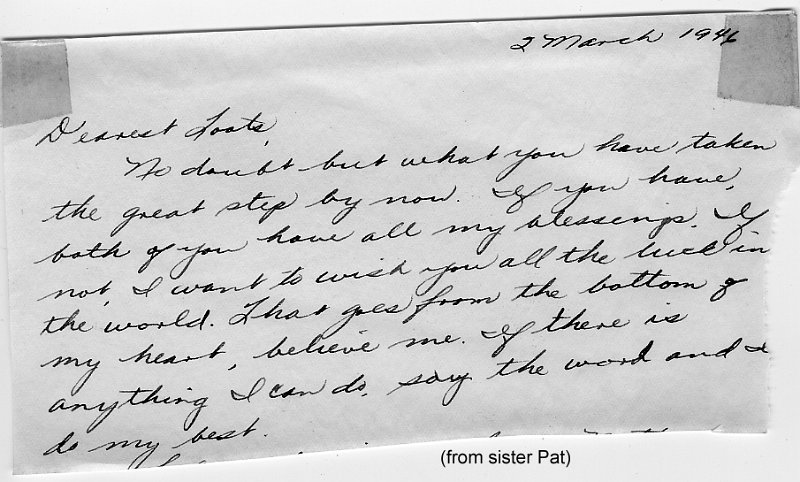 2 March 1946
Dearest Toots,
No doubt but what you have taken
the great step by now. If you have,
both of you have all my blessings. If
not, I want to wish you all the luck in
the world. That goes from the bottom of
my heart, believe me. If there is
anything I can do, say the word and I
do my best.
(from sister Pat)